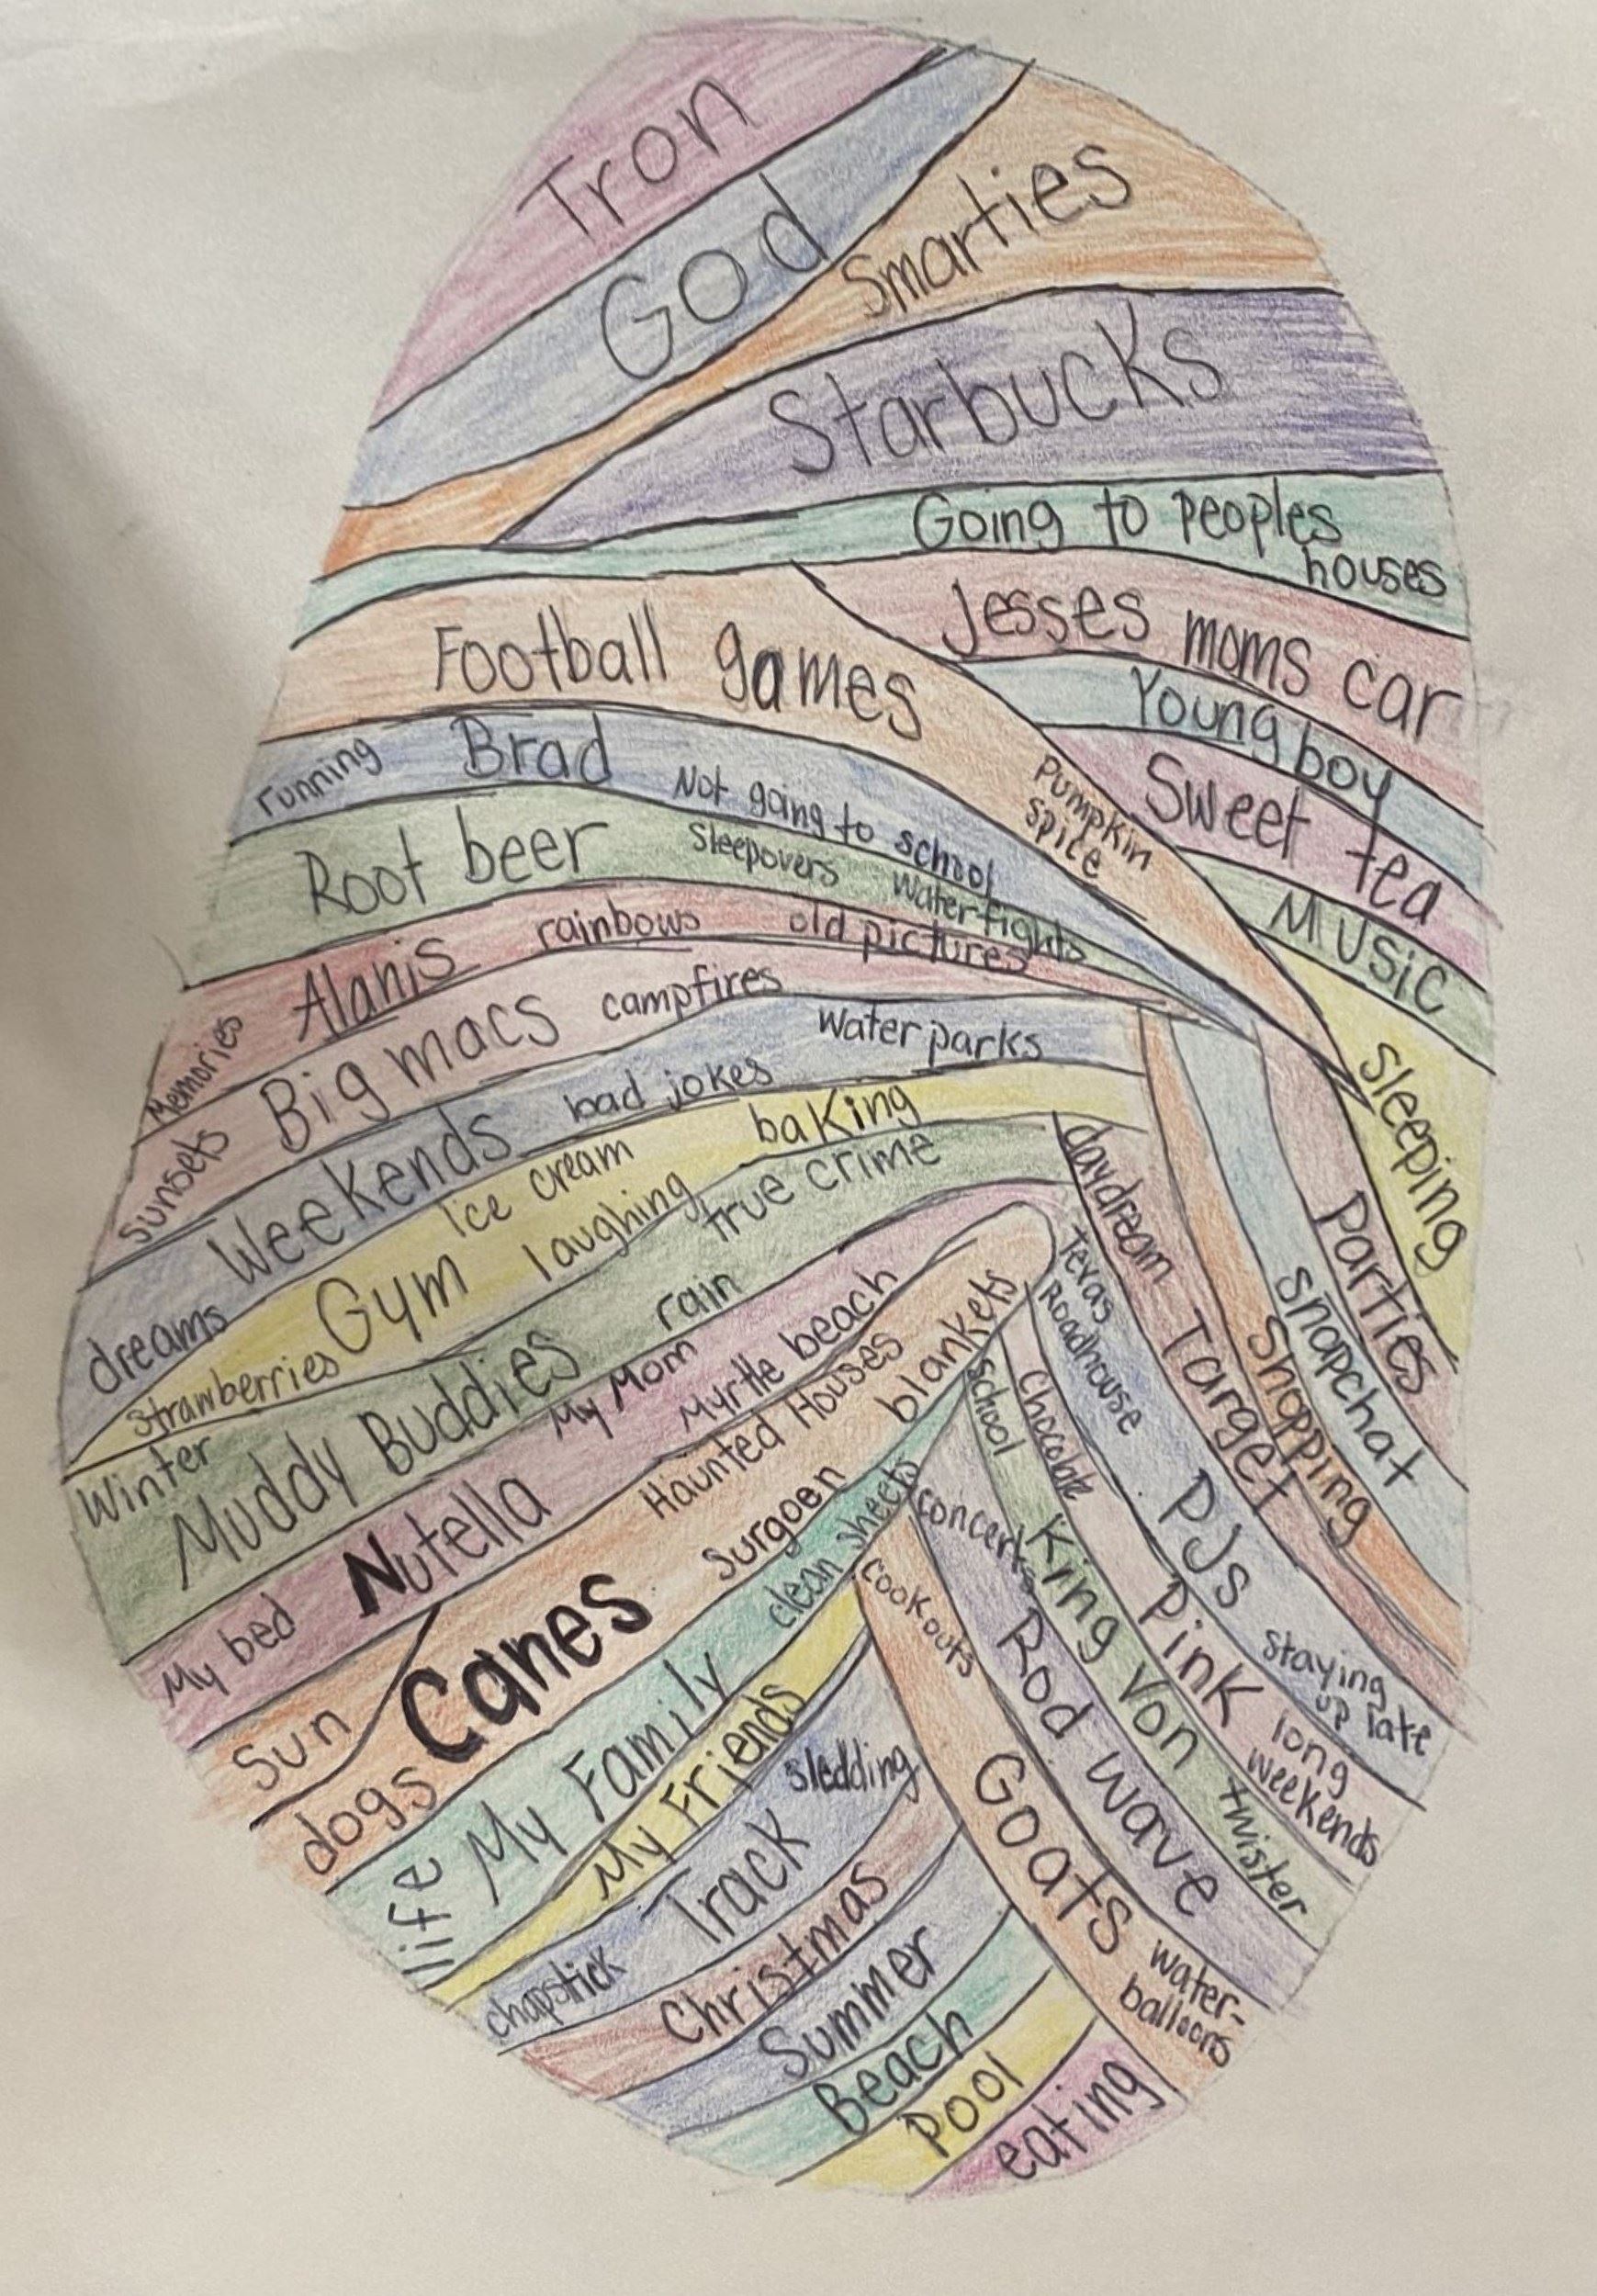 Tron
God
Smarties
Starbucks
Going to peoples
houses
Football games
Jesses moms car
Youngboy
Pumpkin
spice
Sweet tea
Music
Sleeping
running Brad Not going to school
Root beer Sleepovers water fights
Memories Alanis rainbows old pictures
sunsets Big macs campfires
dreams Weekends bad jokes water parks
Strawberries Gym Ice cream laughing baking
Winter Muddy Buddies rain true crime
My bed Nutella My Mom Myrtle beach
Sun
dogs Canes Surgoen Haunted Houses blankets
life My Family clean sheets
My Friends
chapstick Track sledding
Christmas
Summer
Beach
Pool
eating
Parties
snapchat
Shopping
daydream Target
Texas
Roadhouse PJs staying
up late
Chocolate Pink long
weekends
school King Von twister
concerts Rod wave
cookouts Goats water-
balloons